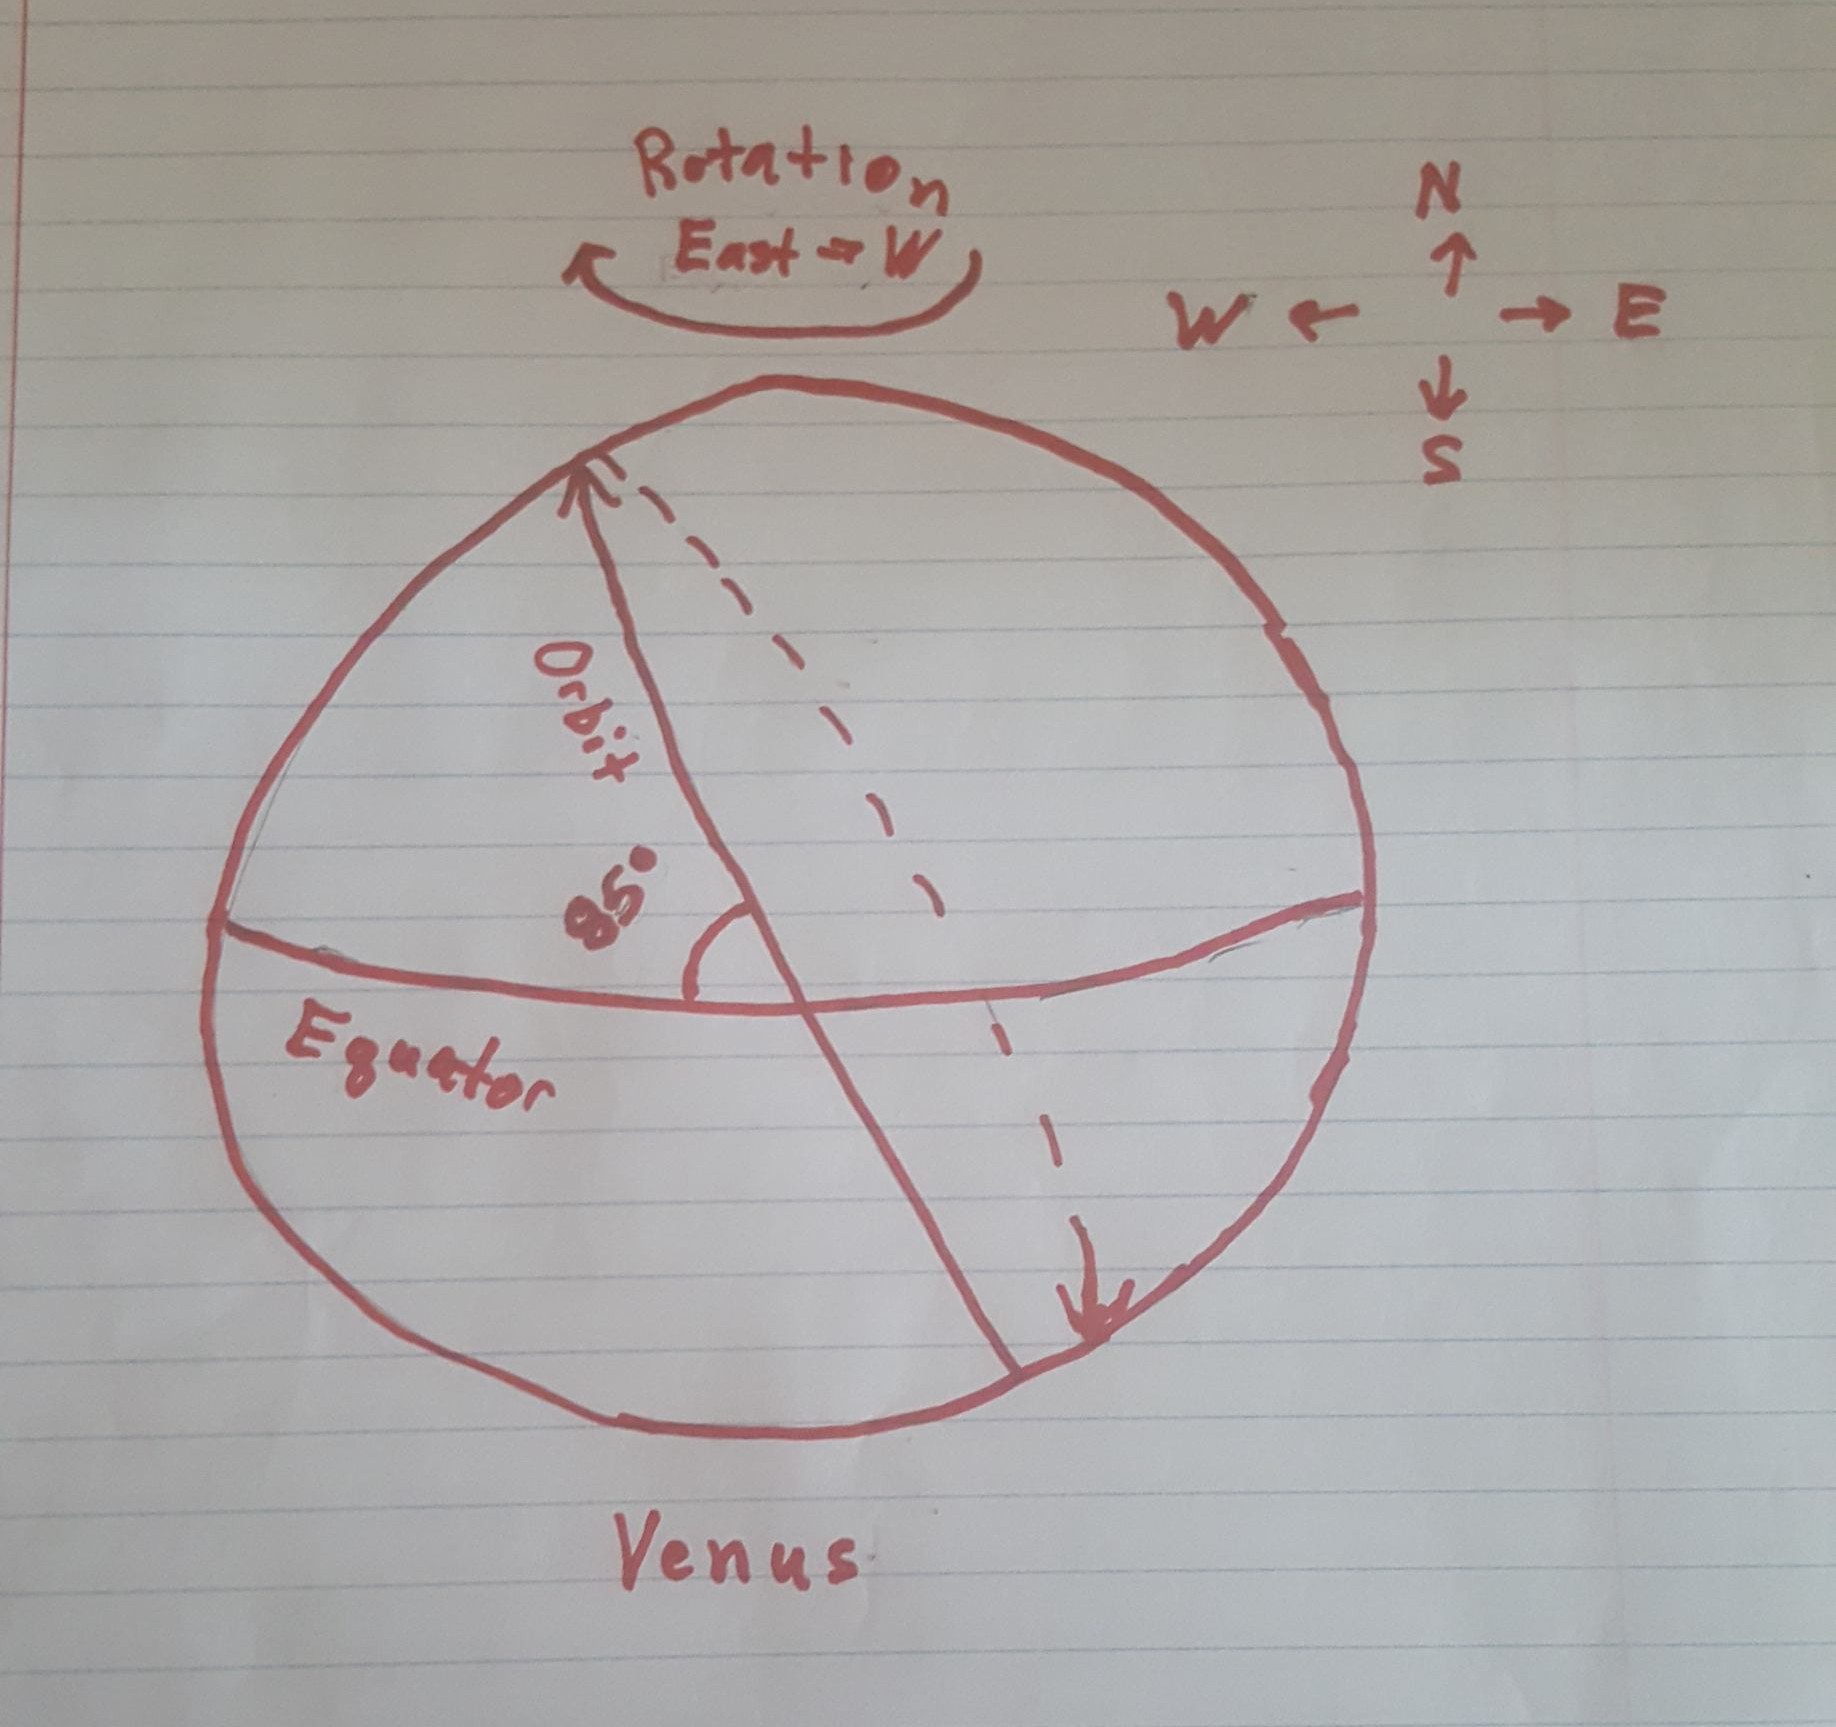 Rotation
East → W
N
↑
W ← → E
↓
S
Orbit
85°
Equator
Venus